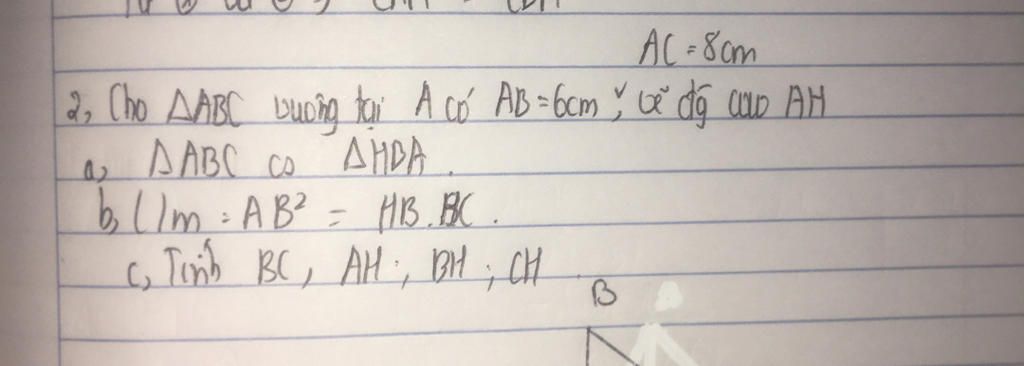 AC = 8cm
2, Cho ΔABC vuông tại A có AB = 6cm ; vẽ đg cao AH
a, ΔABC ∽ ΔHBA.
b, C/m : AB² = HB.BC.
c, Tính BC, AH ; BH ; CH
B